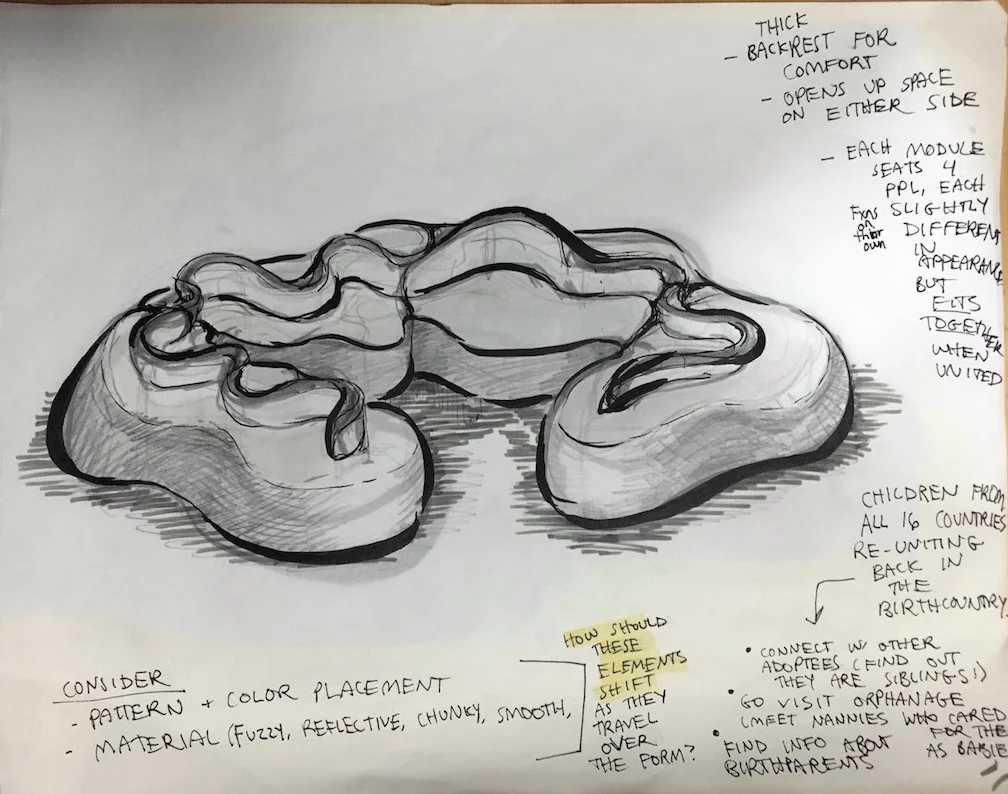 THICK
- BACKREST FOR
COMFORT
- OPENS UP SPACE
ON EITHER SIDE
- EACH MODULE
SEATS 4
PPL, EACH
SLIGHTLY
DIFFERENT
IN
APPEARANCE
BUT
FITS
TOGETHER
WHEN
UNITED
FXNS
ON
THEIR
OWN
CHILDREN FROM
ALL 16 COUNTRIES
RE-UNITING
BACK IN
THE
BIRTHCOUNTRY
• CONNECT W/ OTHER
ADOPTEES (FIND OUT
THEY ARE SIBLINGS!)
• GO VISIT ORPHANAGE
(MEET NANNIES WHO CARED
FOR THE
AS BABIE
• FIND INFO ABOUT
BIRTHPARENTS
HOW SHOULD
THESE
ELEMENTS
SHIFT
AS THEY
TRAVEL
OVER
THE FORM?
CONSIDER
- PATTERN + COLOR PLACEMENT
- MATERIAL (FUZZY, REFLECTIVE, CHUNKY, SMOOTH,